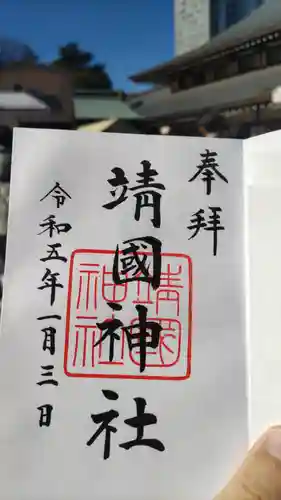 奉拜
靖國神社
靖國神社
令和五年一月三日